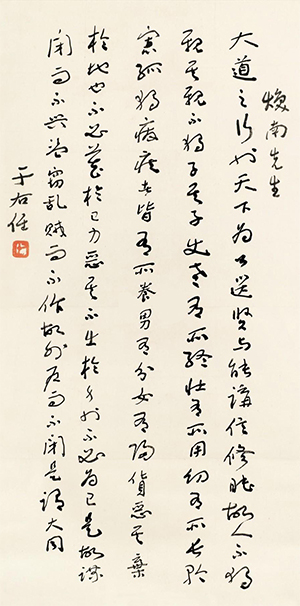 煥南先生
大道之行也天下為公選賢與能講信修睦故人不獨
親其親不獨子其子使老有所終壯有所用幼有所長矜
寡孤獨廢疾者皆有所養男有分女有歸貨惡其棄
於地也不必藏於己力惡其不出於身也不必為己是故謀
閉而不興盜竊亂賊而不作故外戶而不閉是謂大同
于右任